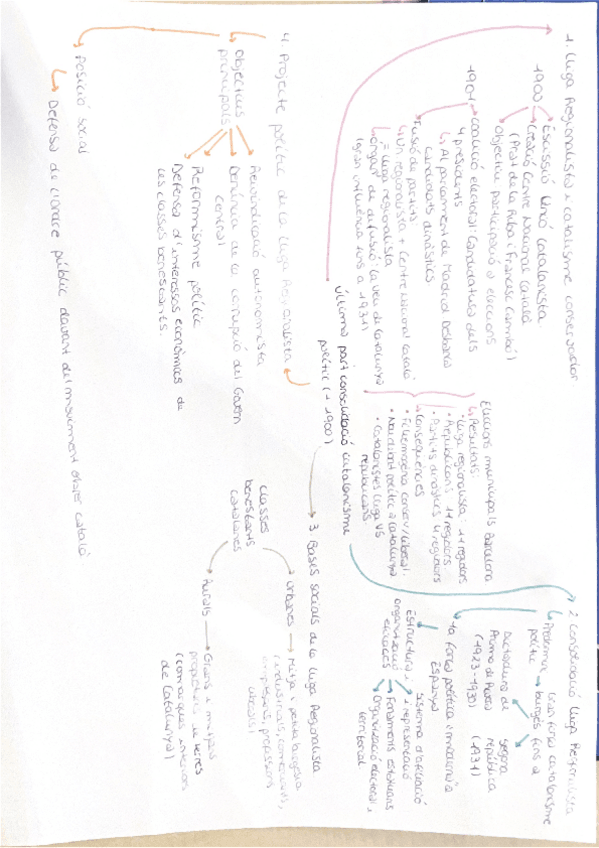 1. Lliga Regionalista i catalanisme conservador
1900
Escissió Unió Catalanista
Creació Centre Nacional Català
(Prat de la Riba i Francesc Cambó)
Objectiu participació a eleccions
1901 → Coalició electoral: Candidatura dels
4 presidents
↳ Al parlament de Madrid
candidats dinàstics
Fusió de partits
↳ Unió regionalista + Centre Nacional Català
= Lliga regionalista
↳ òrgan de difusió: La veu de Catalunya
(gran influència fins a 1931)
Eleccions municipals Barcelona
↳ Resultats:
• Lliga regionalista: 11 regidors
• Republicans: 11 regidors
• Partits dinàstics 4 regidors
↳ Conseqüències
• Fi hegemonia conserv/liberal.
• Nou context polític a Catalunya
• Catalanistes (Lliga) VS
republicans
2. Consolidació Lliga Regionalista
↳ Programa
polític
Gran força catalanisme
burgès fins a
Dictadura de
Primo de Rivera
(1923-1930)
Segona
república
(1931)
1a força política innovació a
Espanya
Estructura i
organització
eficaces
Sistema d'afiliació
i representació
Fonaments estatutaris
Organització electoral i
territorial
Últims part consolidació catalanisme
polític (+1900)
3. Bases socials de la Lliga Regionalista
classes
benestants
catalanes
Urbanes → Mitja i petita burgesia
(industrials, comerciants,
empresaris, professions
liberals)
Rurals → Grans i mitjans
propietaris de terres
(comarques interiors
de Catalunya)
4. Projecte polític de la Lliga Regionalista
Objectius
principals
Reivindicació autonomista
Denúncia de la corrupció del Govern
central
Reformisme polític
Defensa d'interessos econòmics de
les classes benestants.
Posició social
↳ Defensa de l'ordre públic davant del moviment obrer català